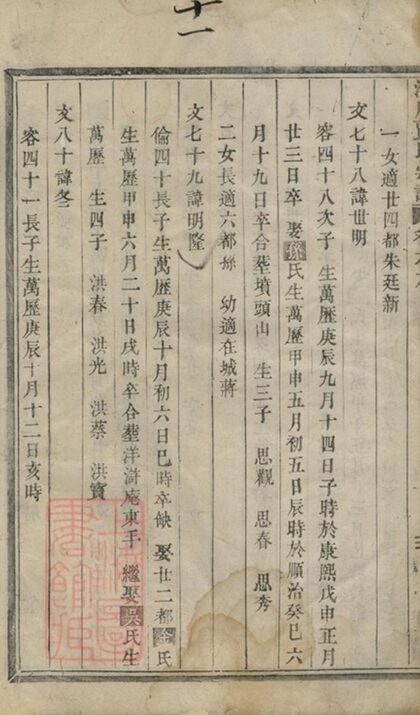 十一
一女適廿四都朱廷新
文七十八諱世明
容四十八次子 生萬歷庚辰九月十四日子時於康熙戊申正月
廿三日卒 娶孫氏生萬歷甲申五月初五日辰時於順治癸巳六
月十九日卒合塟墳頭山 生三子 思觀 思春 思秀
二女長適六都孫 幼適在城蔣
文七十九諱明隆
倫四十長子生萬歷庚辰十月初六日巳時卒缺 娶廿二都金氏
生萬歷甲申六月二十日戌時卒合塟洋滸庵東手 繼娶吳氏生
萬歷 生四子 洪春 洪光 洪蔡 洪賓
文八十諱冬
容四十一長子生萬歷庚辰十月十二日亥時